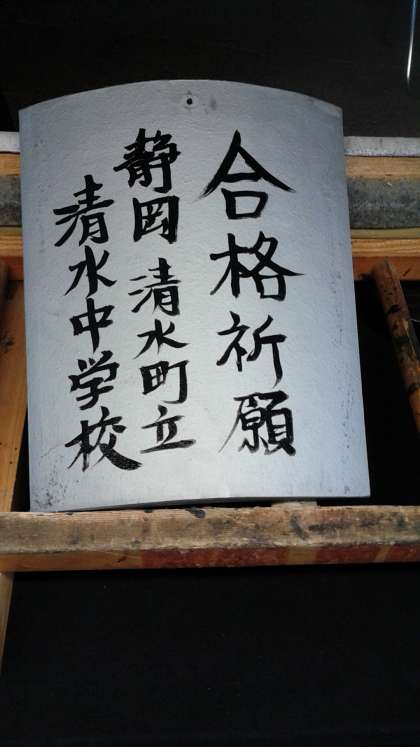 合格祈願
静岡 清水町立
清水中学校